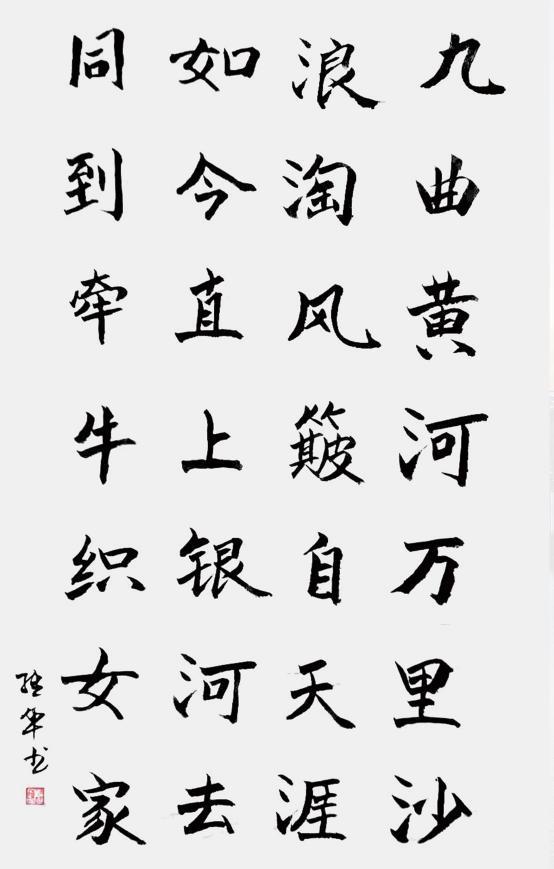 九曲黄河万里沙
浪淘风簸自天涯
如今直上银河去
同到牵牛织女家
华书